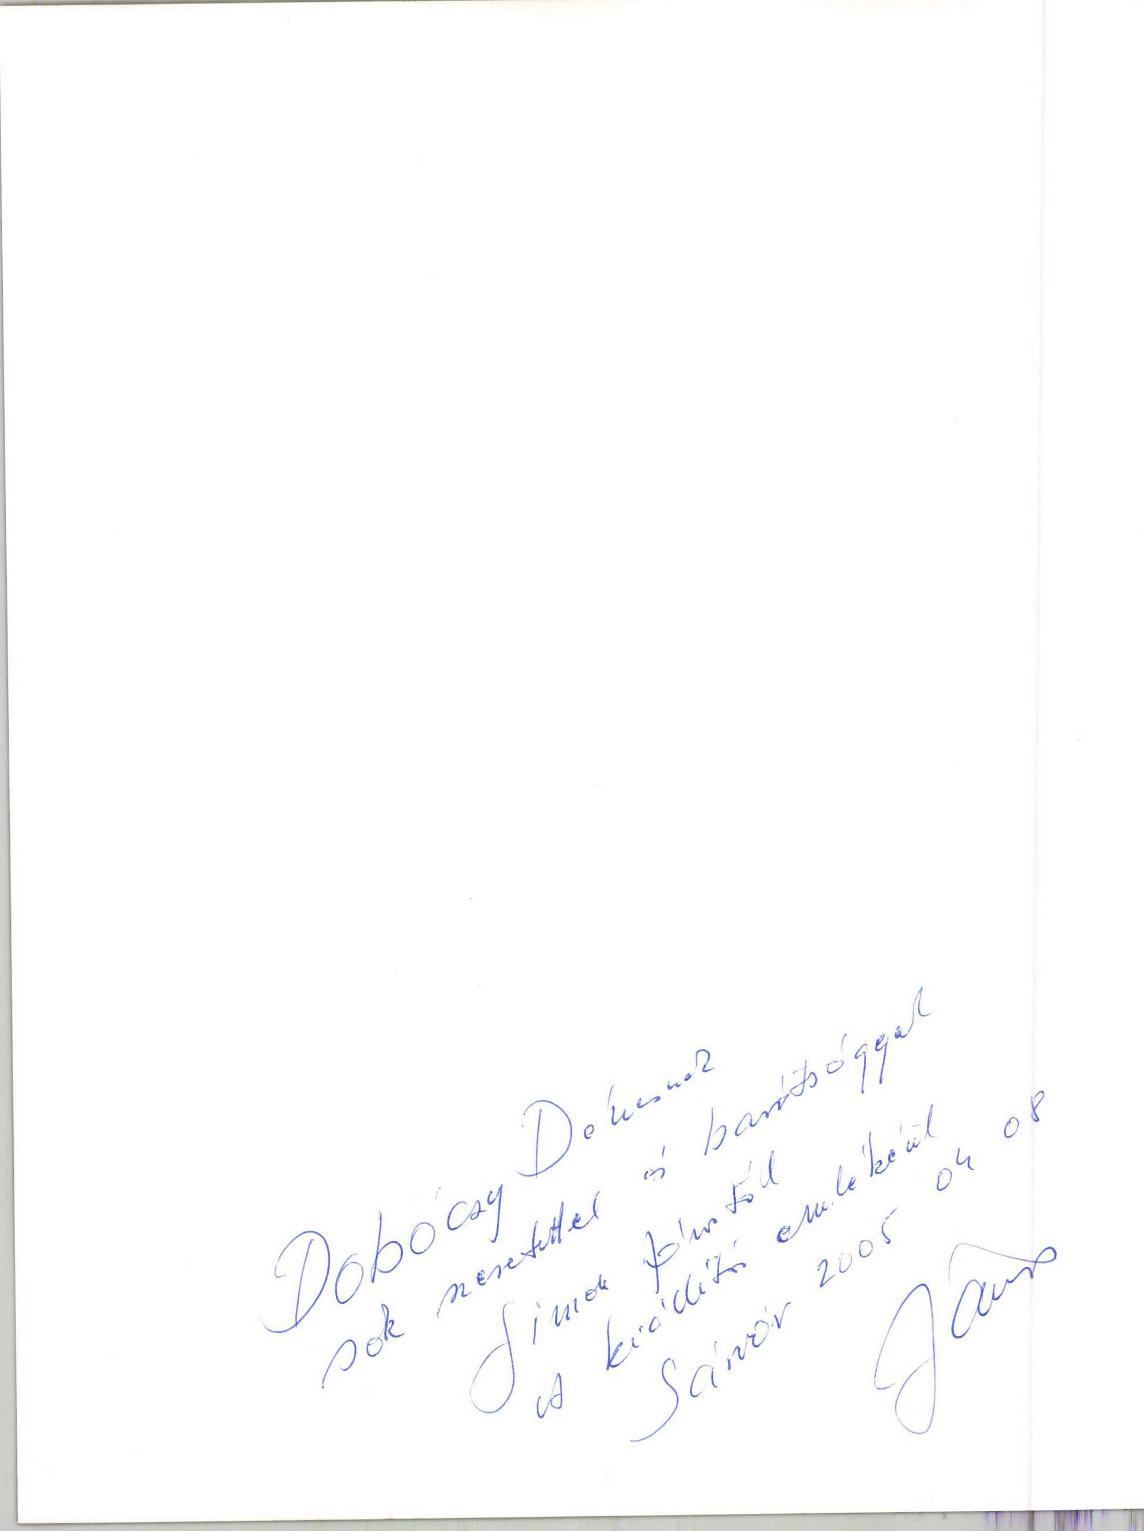 Dobócsy Dénesnek
sok szeretettel és barátsággal
Simon Jánostól
a kiállítás emlékéül
Sárvár 2005 04 08
János